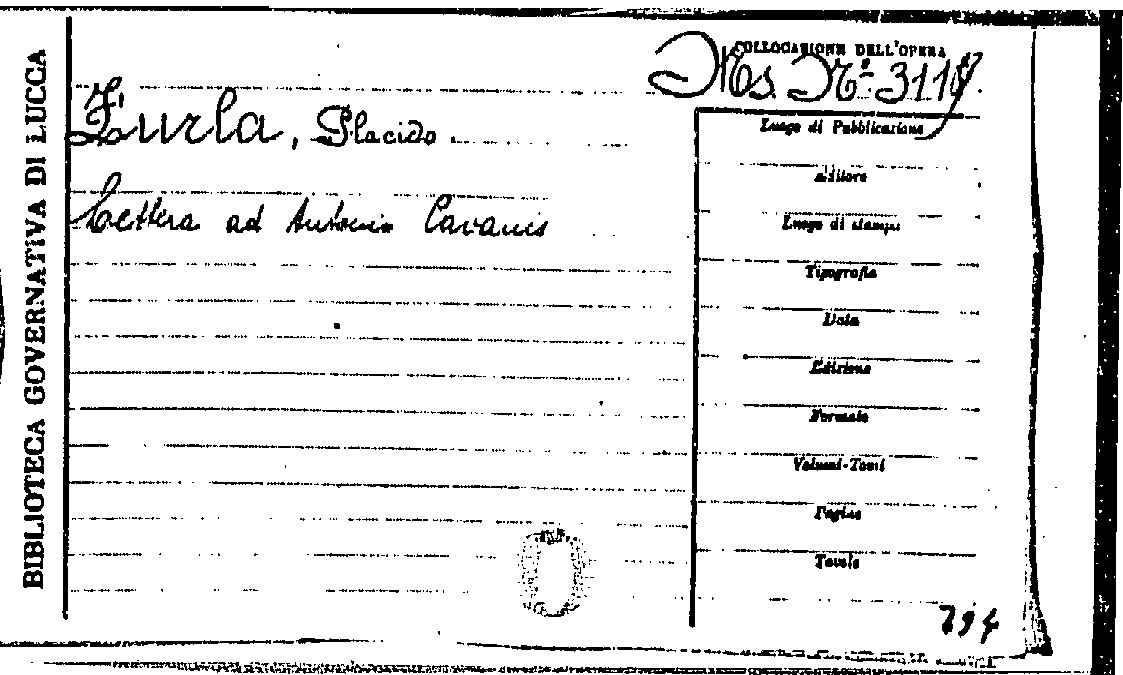 BIBLIOTECA GOVERNATIVA DI LUCCA
COLLOCAZIONE DELL'OPERA
Ms. N.º 3119
Zurla, Placido.
Lettera ad Antonio Cavanis
Luogo di Pubblicazione
Editore
Luogo di stampa
Tipografia
Data
Edizione
Formato
Volumi-Tomi
Pagine
Tavole
794